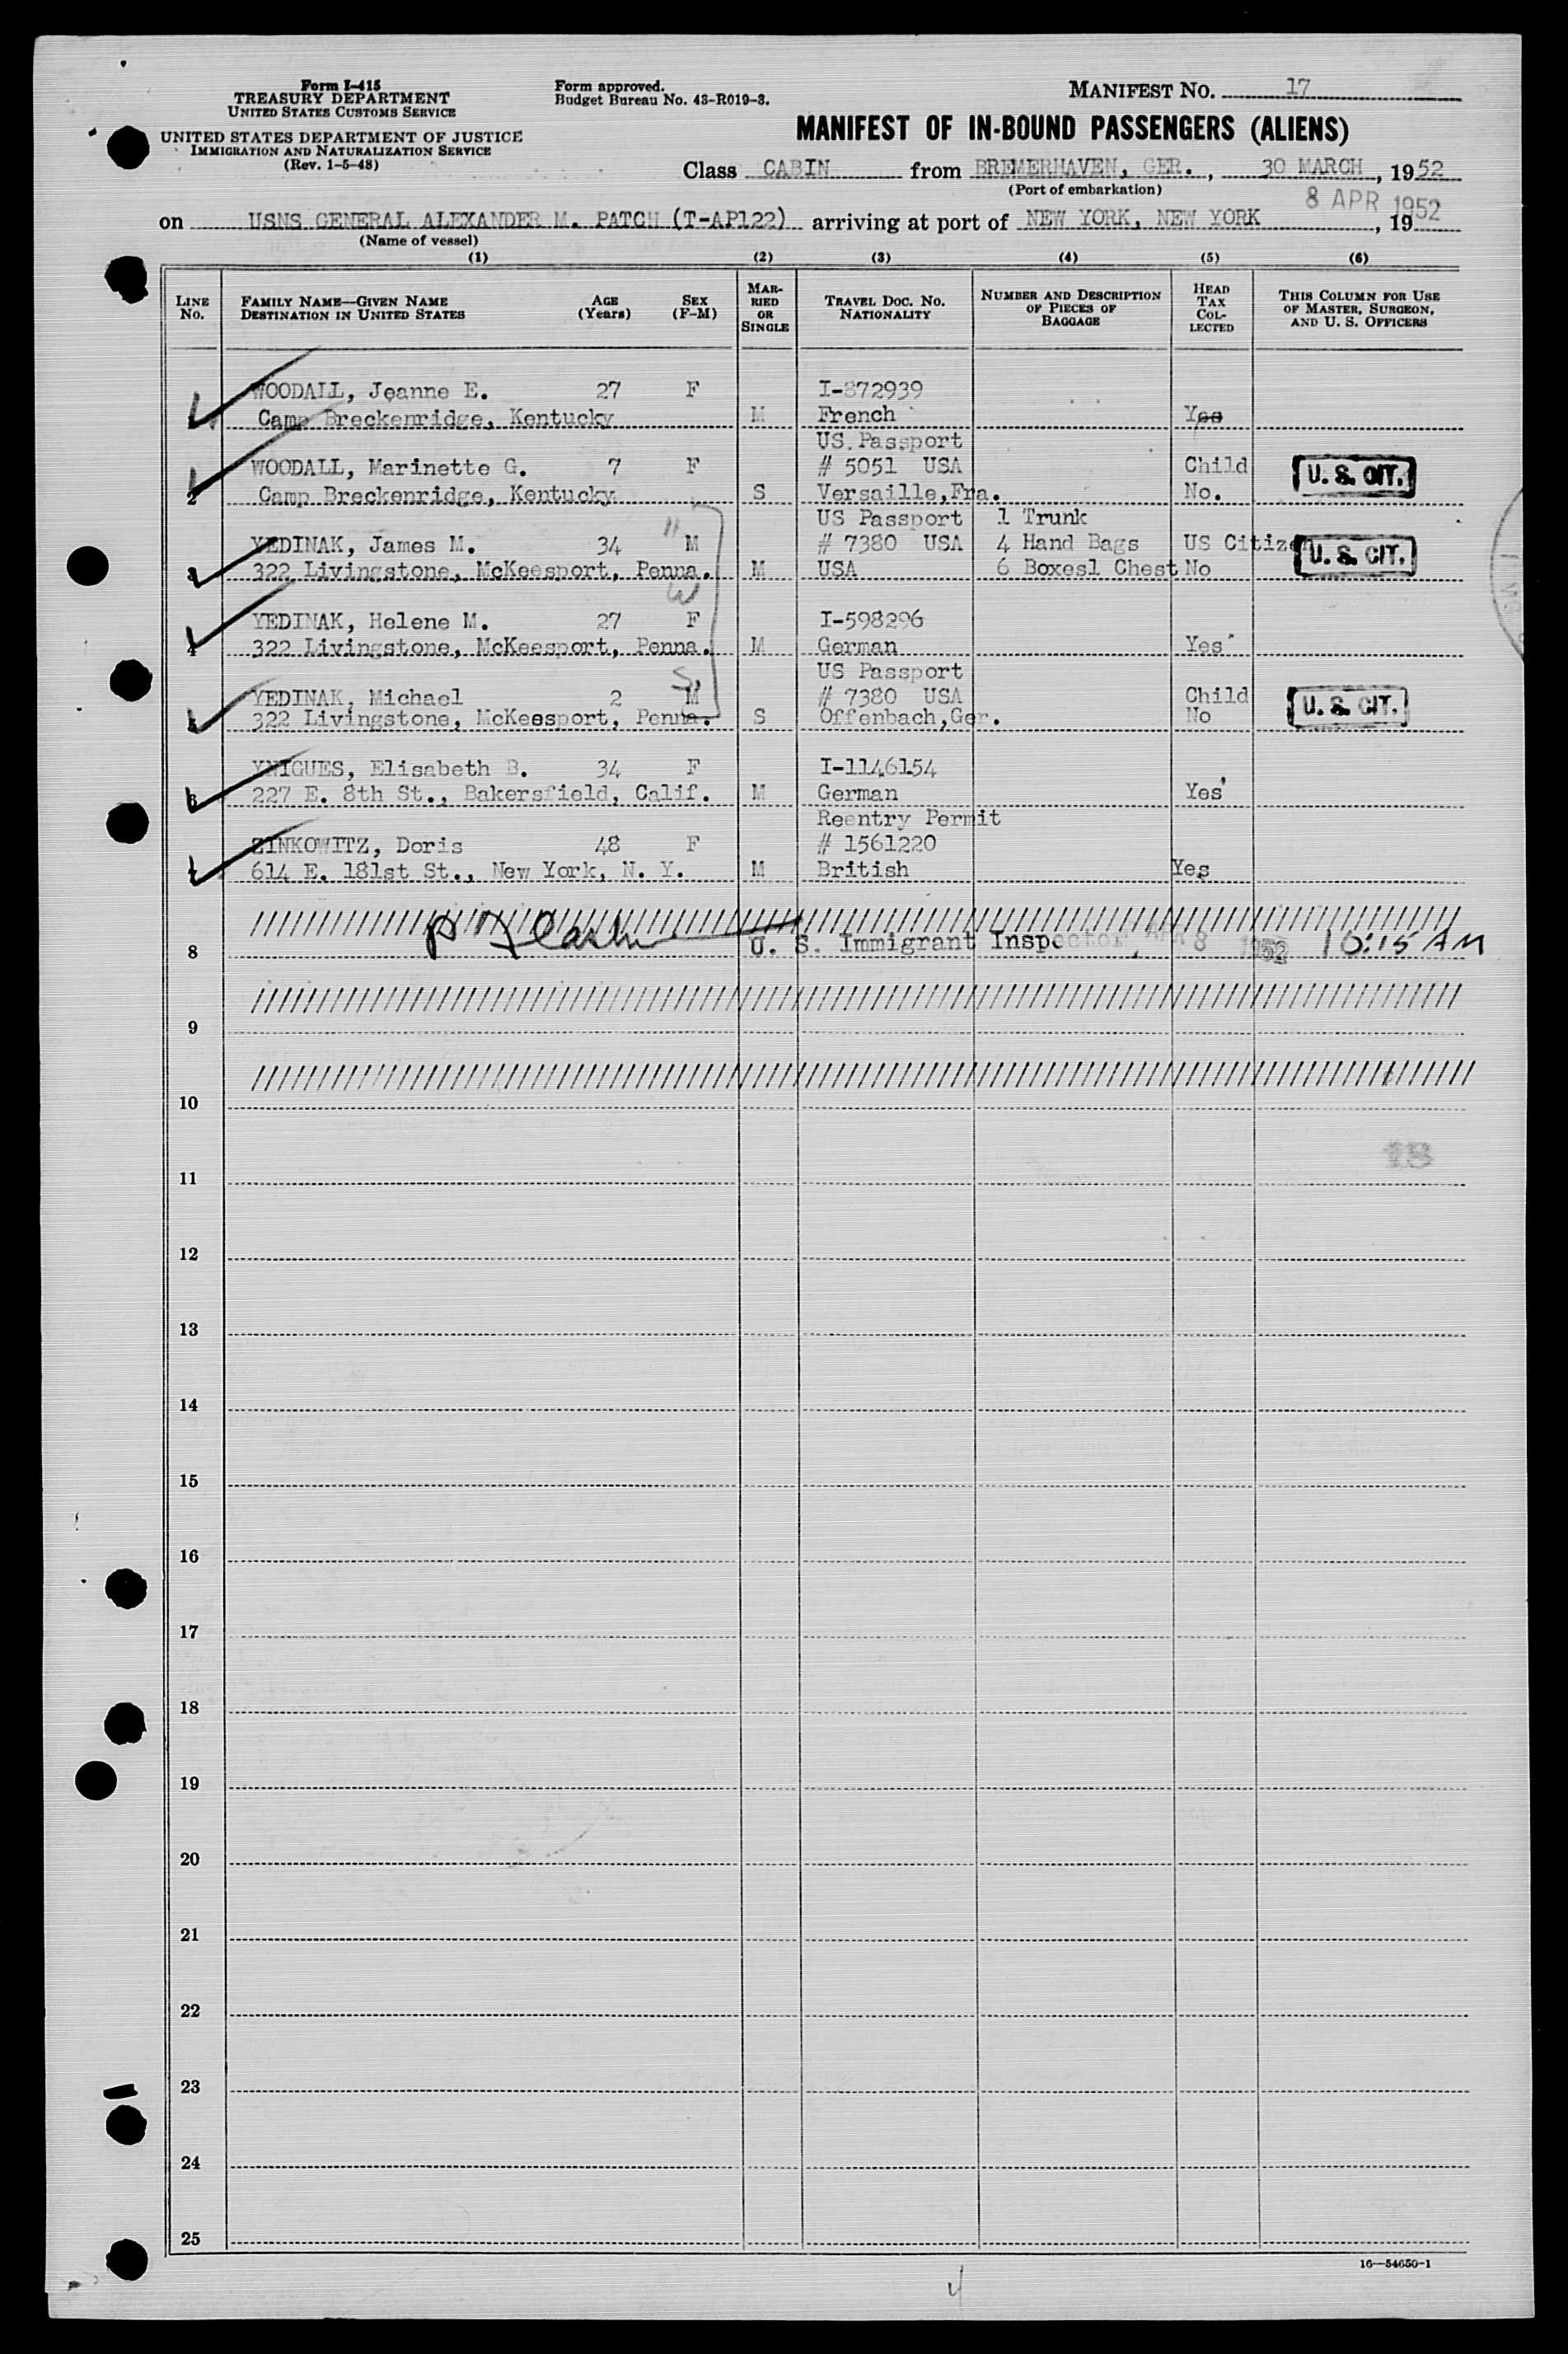 Form I-415
TREASURY DEPARTMENT
UNITED STATES CUSTOMS SERVICE
UNITED STATES DEPARTMENT OF JUSTICE
IMMIGRATION AND NATURALIZATION SERVICE
(Rev. 1-5-48)
Form approved.
Budget Bureau No. 43-R019-3.
MANIFEST NO. 17
MANIFEST OF IN-BOUND PASSENGERS (ALIENS)
Class CABIN from BREMERHAVEN, GER., 30 MARCH, 1952
(Port of embarkation)
8 APR 1952
on USNS GENERAL ALEXANDER M. PATCH (T-AP122) arriving at port of NEW YORK, NEW YORK, 19
(Name of vessel)
(1) (2) (3) (4) (5) (6)
LINE NO.
FAMILY NAME—GIVEN NAME
DESTINATION IN UNITED STATES
AGE (Years)
SEX (F-M)
MARRIED OR SINGLE
TRAVEL DOC. NO.
NATIONALITY
NUMBER AND DESCRIPTION OF PIECES OF BAGGAGE
HEAD TAX COLLECTED
THIS COLUMN FOR USE OF MASTER, SURGEON, AND U. S. OFFICERS
WOODALL, Jeanne E. 27 F I-872939
1 Camp Breckenridge, Kentucky M French Yes
US Passport
WOODALL, Marinette G. 7 F # 5051 USA Child U. S. CIT.
2 Camp Breckenridge, Kentucky S Versaille,Fra. No.
US Passport 1 Trunk
H
YEDINAK, James M. 34 M # 7380 USA 4 Hand Bags US Citizen U. S. CIT.
3 322 Livingstone, McKeesport, Penna. M USA 6 Boxes1 Chest No
W
YEDINAK, Helene M. 27 F I-598296
4 322 Livingstone, McKeesport, Penna. M German Yes
US Passport
S,
YEDINAK, Michael 2 M # 7380 USA Child U. S. CIT.
5 322 Livingstone, McKeesport, Penna. S Offenbach,Ger. No
YNIGUES, Elisabeth B. 34 F I-1146154
6 227 E. 8th St., Bakersfield, Calif. M German Yes
Reentry Permit
ZINKOWITZ, Doris 48 F # 1561220
7 614 E. 181st St., New York, N. Y. M British Yes
8 U. S. Immigrant Inspector, APR 8 1952 10:15 AM
9
10
11
12
13
14
15
16
17
18
19
20
21
22
23
24
25
16—54650-1
4